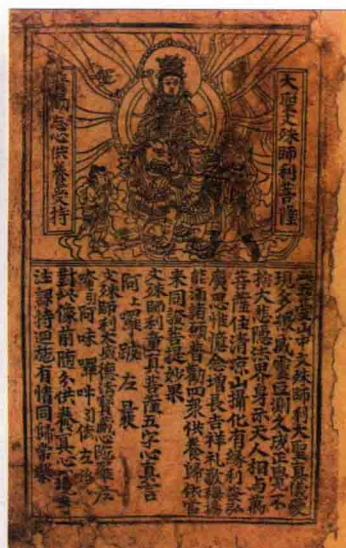 大聖文殊師利菩薩
普勸志心供養受持
此五臺山中文殊師利大聖真儀變
現多般威靈叵測久成正覺不
捨大悲隱法界身示天人相与萬
菩薩住清涼山攝化有緣利益弘
廣思惟憶念增長吉祥礼敬稱揚
能滿諸願普勸四眾供養歸依當
來同證菩提妙果
文殊師利童真菩薩五字心真言
阿上囉跛左曩
文殊師利大威德法寶藏心陀羅尼
唵引阿味囉吽引佉左
對此像前隨分供養冀心一境專
注課誦迴施有情同歸常樂